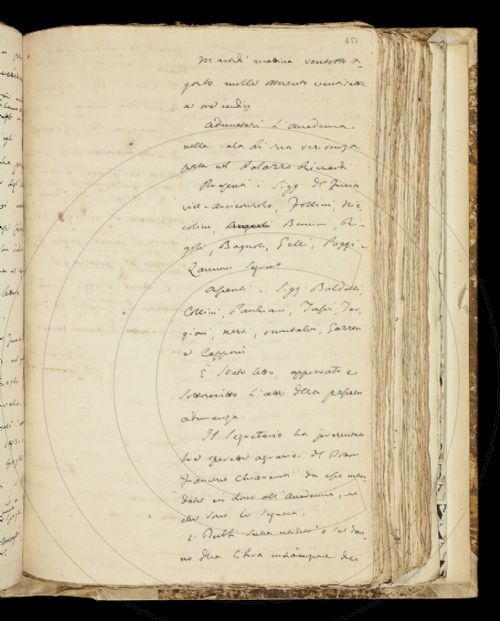 451
Martedì mattina ventotto a-
gosto mille ottocento ventisette
a ore undici
Adunatasi l'Accademia
nella sala di sua residenza
posta nel Palazzo Riccardi
Presenti i Sigg.
vice-Arciconsolo, Follini, Nic-
colini, Bencini, Ri-
goli, Bagnoli, Gelli, Poggi e
Zannoni Segret.
Assenti i Sigg. Baldelli,
Collini, Pauliani, Tar-
gioni, Nesti, Montalvi, Sarren
e Capponi
È stato letto, approvato e
sottoscritto l'atto della passata
adunanza.
Il Segretario ha presentato
tre operette agrarie di
Francesco Chiarenti da esso man-
date in dono all'Accademia,
che sono le seguenti:
1. sulla utilità o sul dan-
no della libera dei